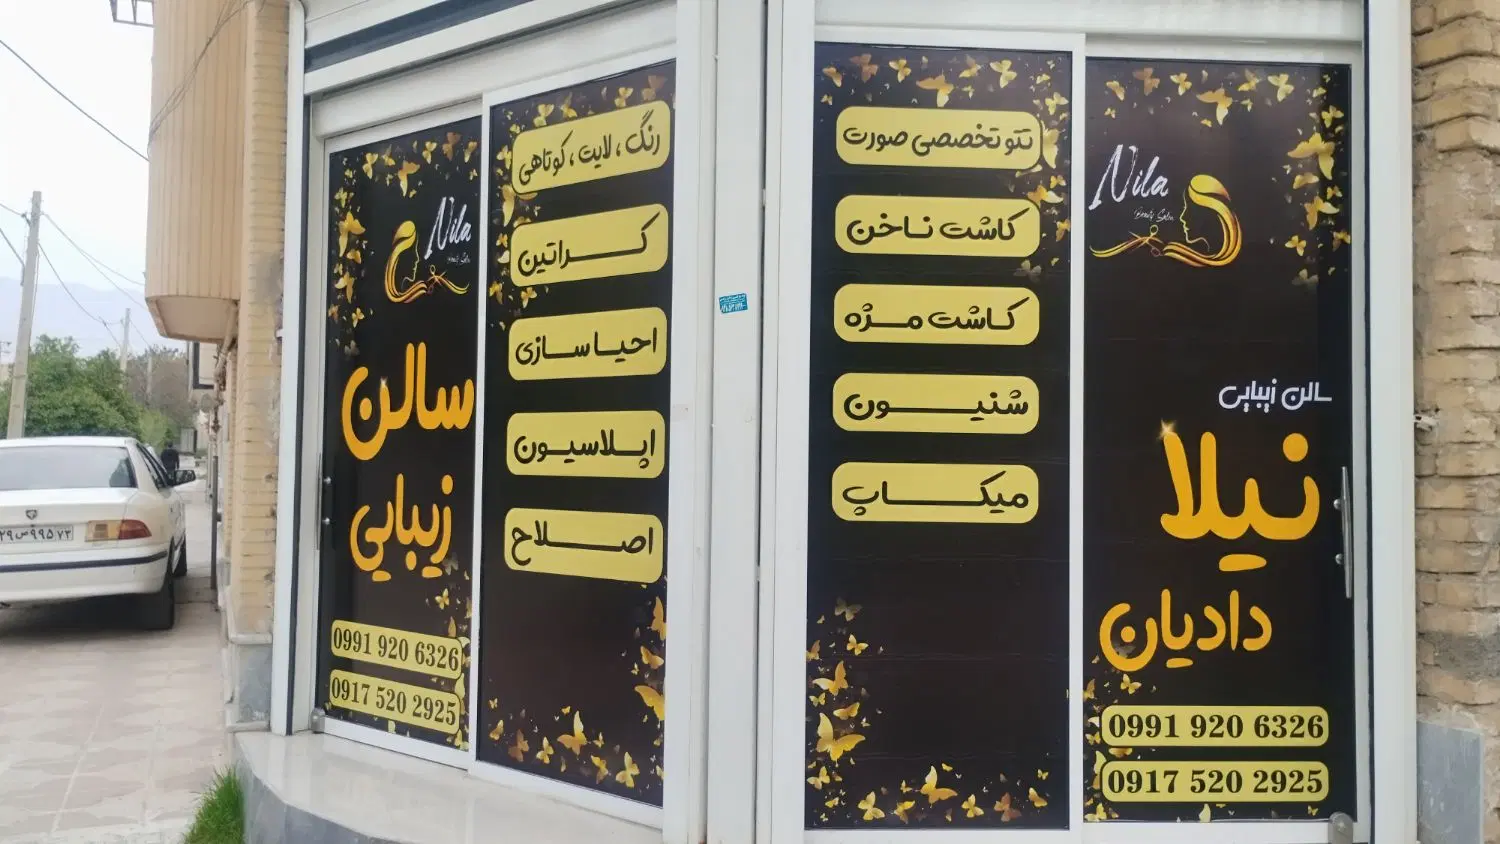 Nila
Beauty Salon
سالن
زیبایی
0991 920 6326
0917 520 2925
رنگ ، لایت ، کوتاهی
کراتین
احیاسازی
اپلاسیون
اصلاح
تتو تخصصی صورت
کاشت ناخن
کاشت مژه
شنیون
میکاپ
Nila
Beauty Salon
سالن زیبایی
نیلا
دادیان
0991 920 6326
0917 520 2925